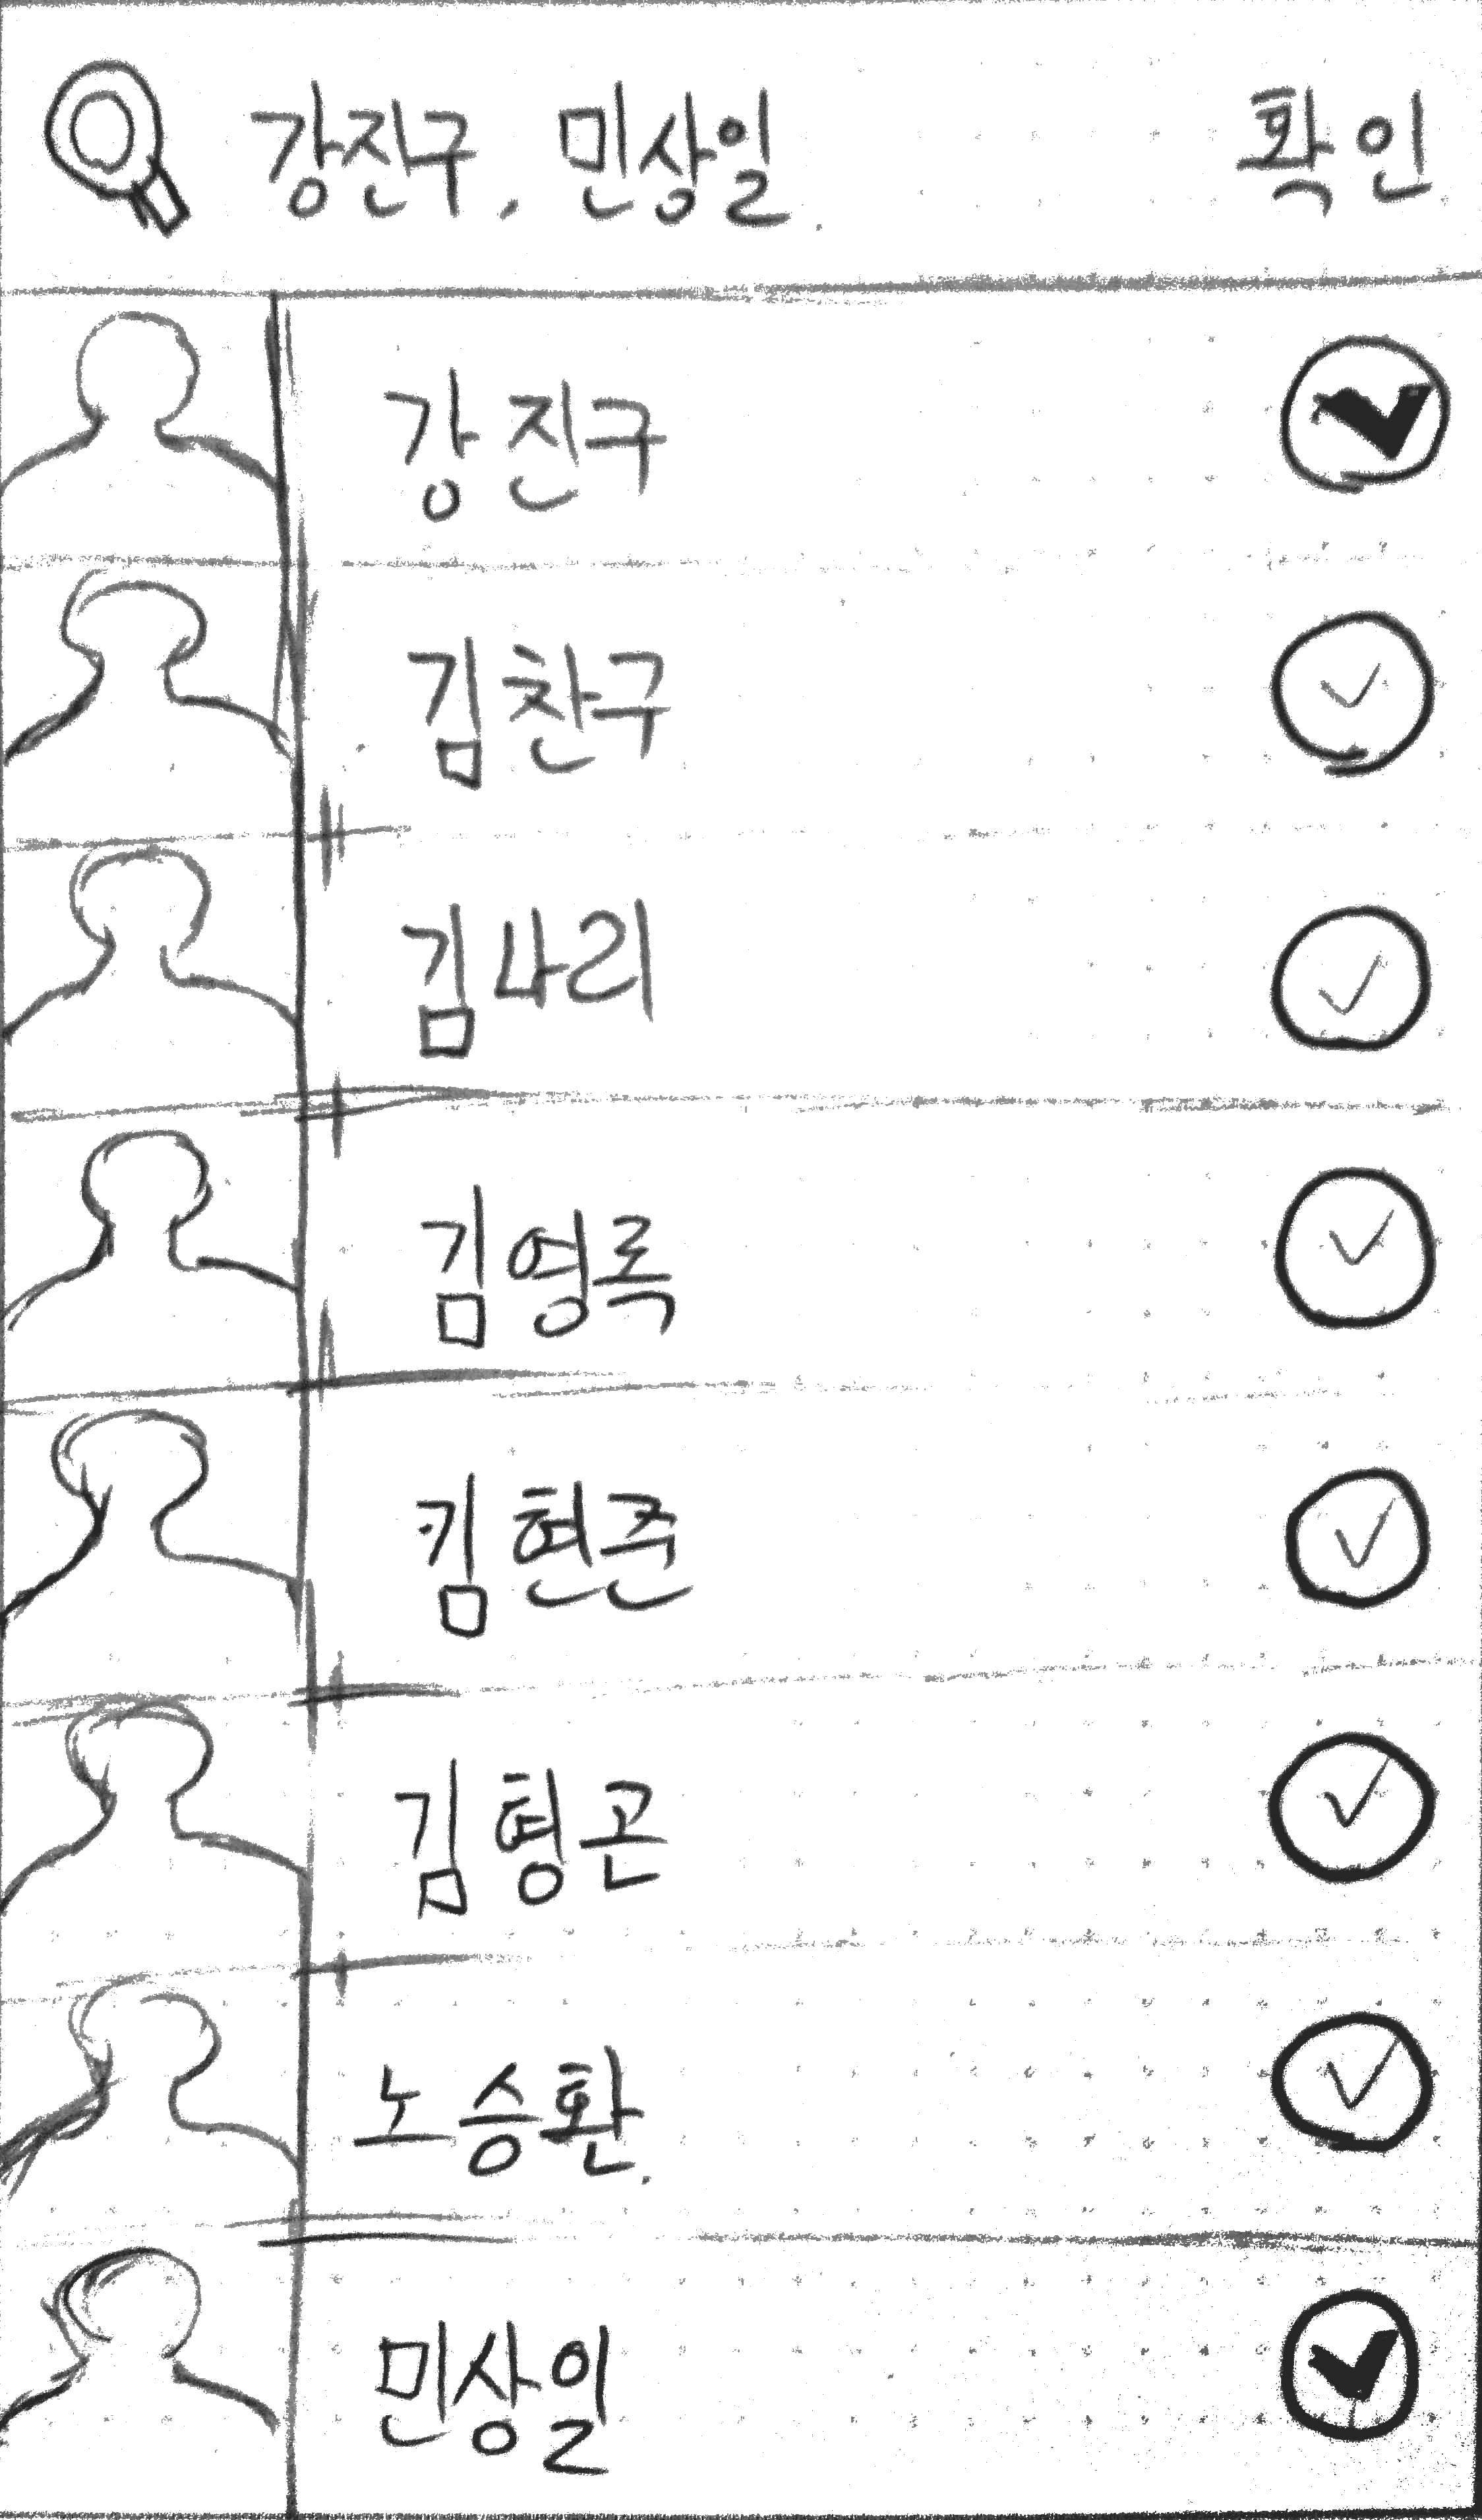 강진구, 민상일.
확인
강진구
김찬구
김나리
김영록
킴현준
김형곤
노승환.
민상일